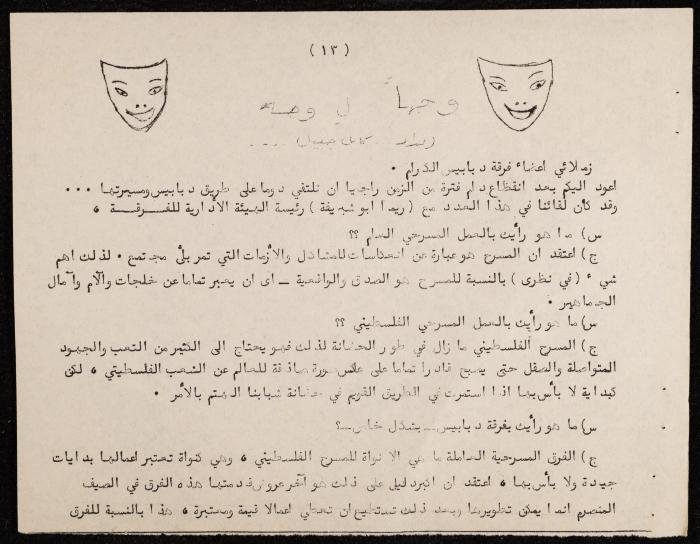 (١٣)
وجهاً لوجه
اعداد .. كامل جبيل ....
زملائي اعضاء فرقة دبابيس الكرام .
اعود اليكم بعد انقطاع دام فترة من الزمن راجيا ان نلتقي دوما على طريق دبابيس ومسيرتها ...
وقد كان لقائنا في هذا العدد مع (ريما ابو شريفة) رئيسة الهيئة الأدارية للفرقة ،
س) ما هو رأيك بالعمل المسرحي العام ؟؟
ج) اعتقد ان المسرح هو عبارة عن انعكاسات للمشاكل والأزمات التي تمر بأي مجتمع . لذلك اهم
شيء (في نظري) بالنسبة للمسرح هو الصدق والواقعية – اى ان يعبر تماما عن خلجات وآلام وآمال
الجماهير .
س) ما هو رأيك بالعمل المسرحي الفلسطيني ؟؟
ج) المسرح الفلسطيني ما زال في طور الحضانة لذلك فهو يحتاج الى الكثير من التعب والجهود
المتواصلة والصقل حتى يصبح قادرا تماما على عكس صورة صادقة للعالم عن الشعب الفلسطيني ، لكن
كبداية لا بأس بها اذا استمرت في الطريق القويم في حضانة شبابنا المهتم بالأمر .
س) ما هو رأيك بفرقة دبابيس – بشكل خاص – ؟
ج) الفرق المسرحية العاملة ما هي الا نواة للمسرح الفلسطيني ، وهي كنواة تعتبر اعمالها بدايات
جيدة ولا بأس بها ، اعتقد ان اكبر دليل على ذلك هو آخر عروض قدمتها هذه الفرق في الصيف
المنصرم انما يمكن تطويرها وبعد ذلك تستطيع ان تعطي اعمالا قيمة ومعتبرة ، هذا بالنسبة للفرق